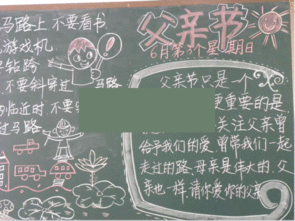 马路上不要看书
游戏机
不要斜穿过马路
临近时不要
过马路
父亲节
6月第3个星期日
父亲节只是一个
更重要的是,
关注父亲曾
给予我们的爱,曾带我们一起
走过的路,母亲是伟大的,父
亲也一样,请你爱你的父亲